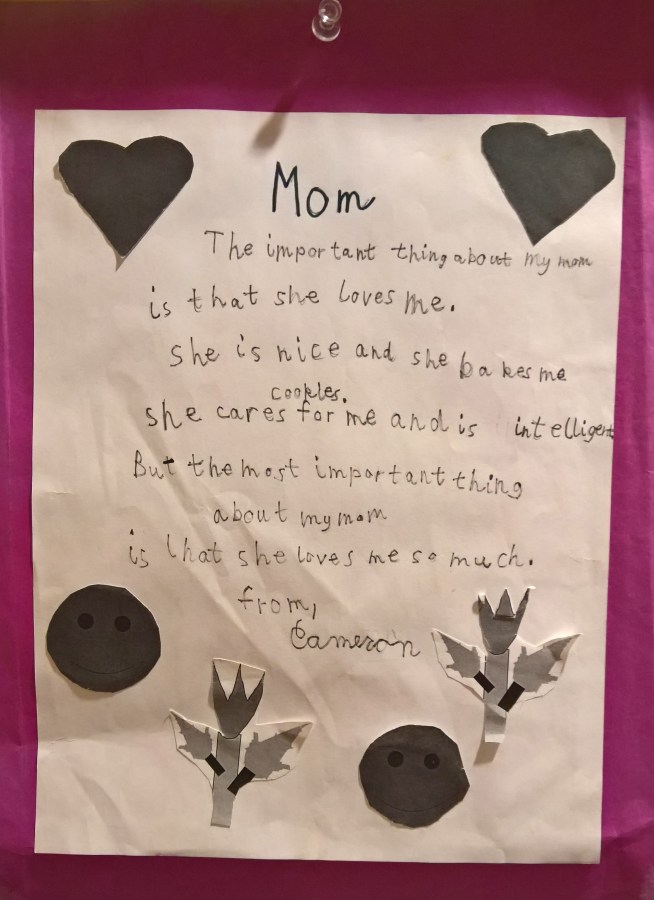 Mom
The important thing about my mom
is that she loves me.
She is nice and she bakes me
cookies.
she cares for me and is intelligent
But the most important thing
about my mom
is that she loves me so much.
from,
Cameron